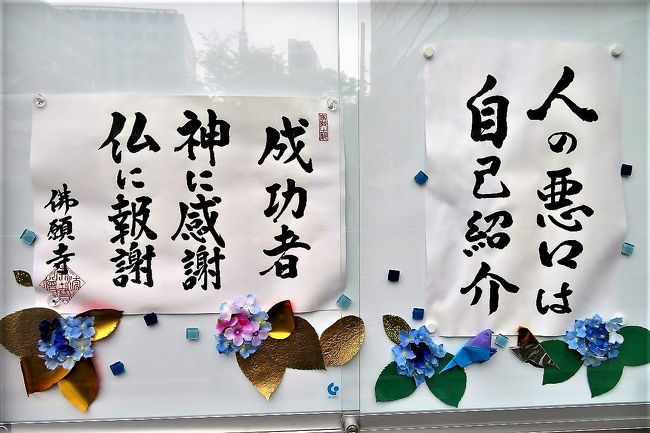 人の悪口は
自己紹介
成功者
神に感謝
仏に報謝
佛願寺